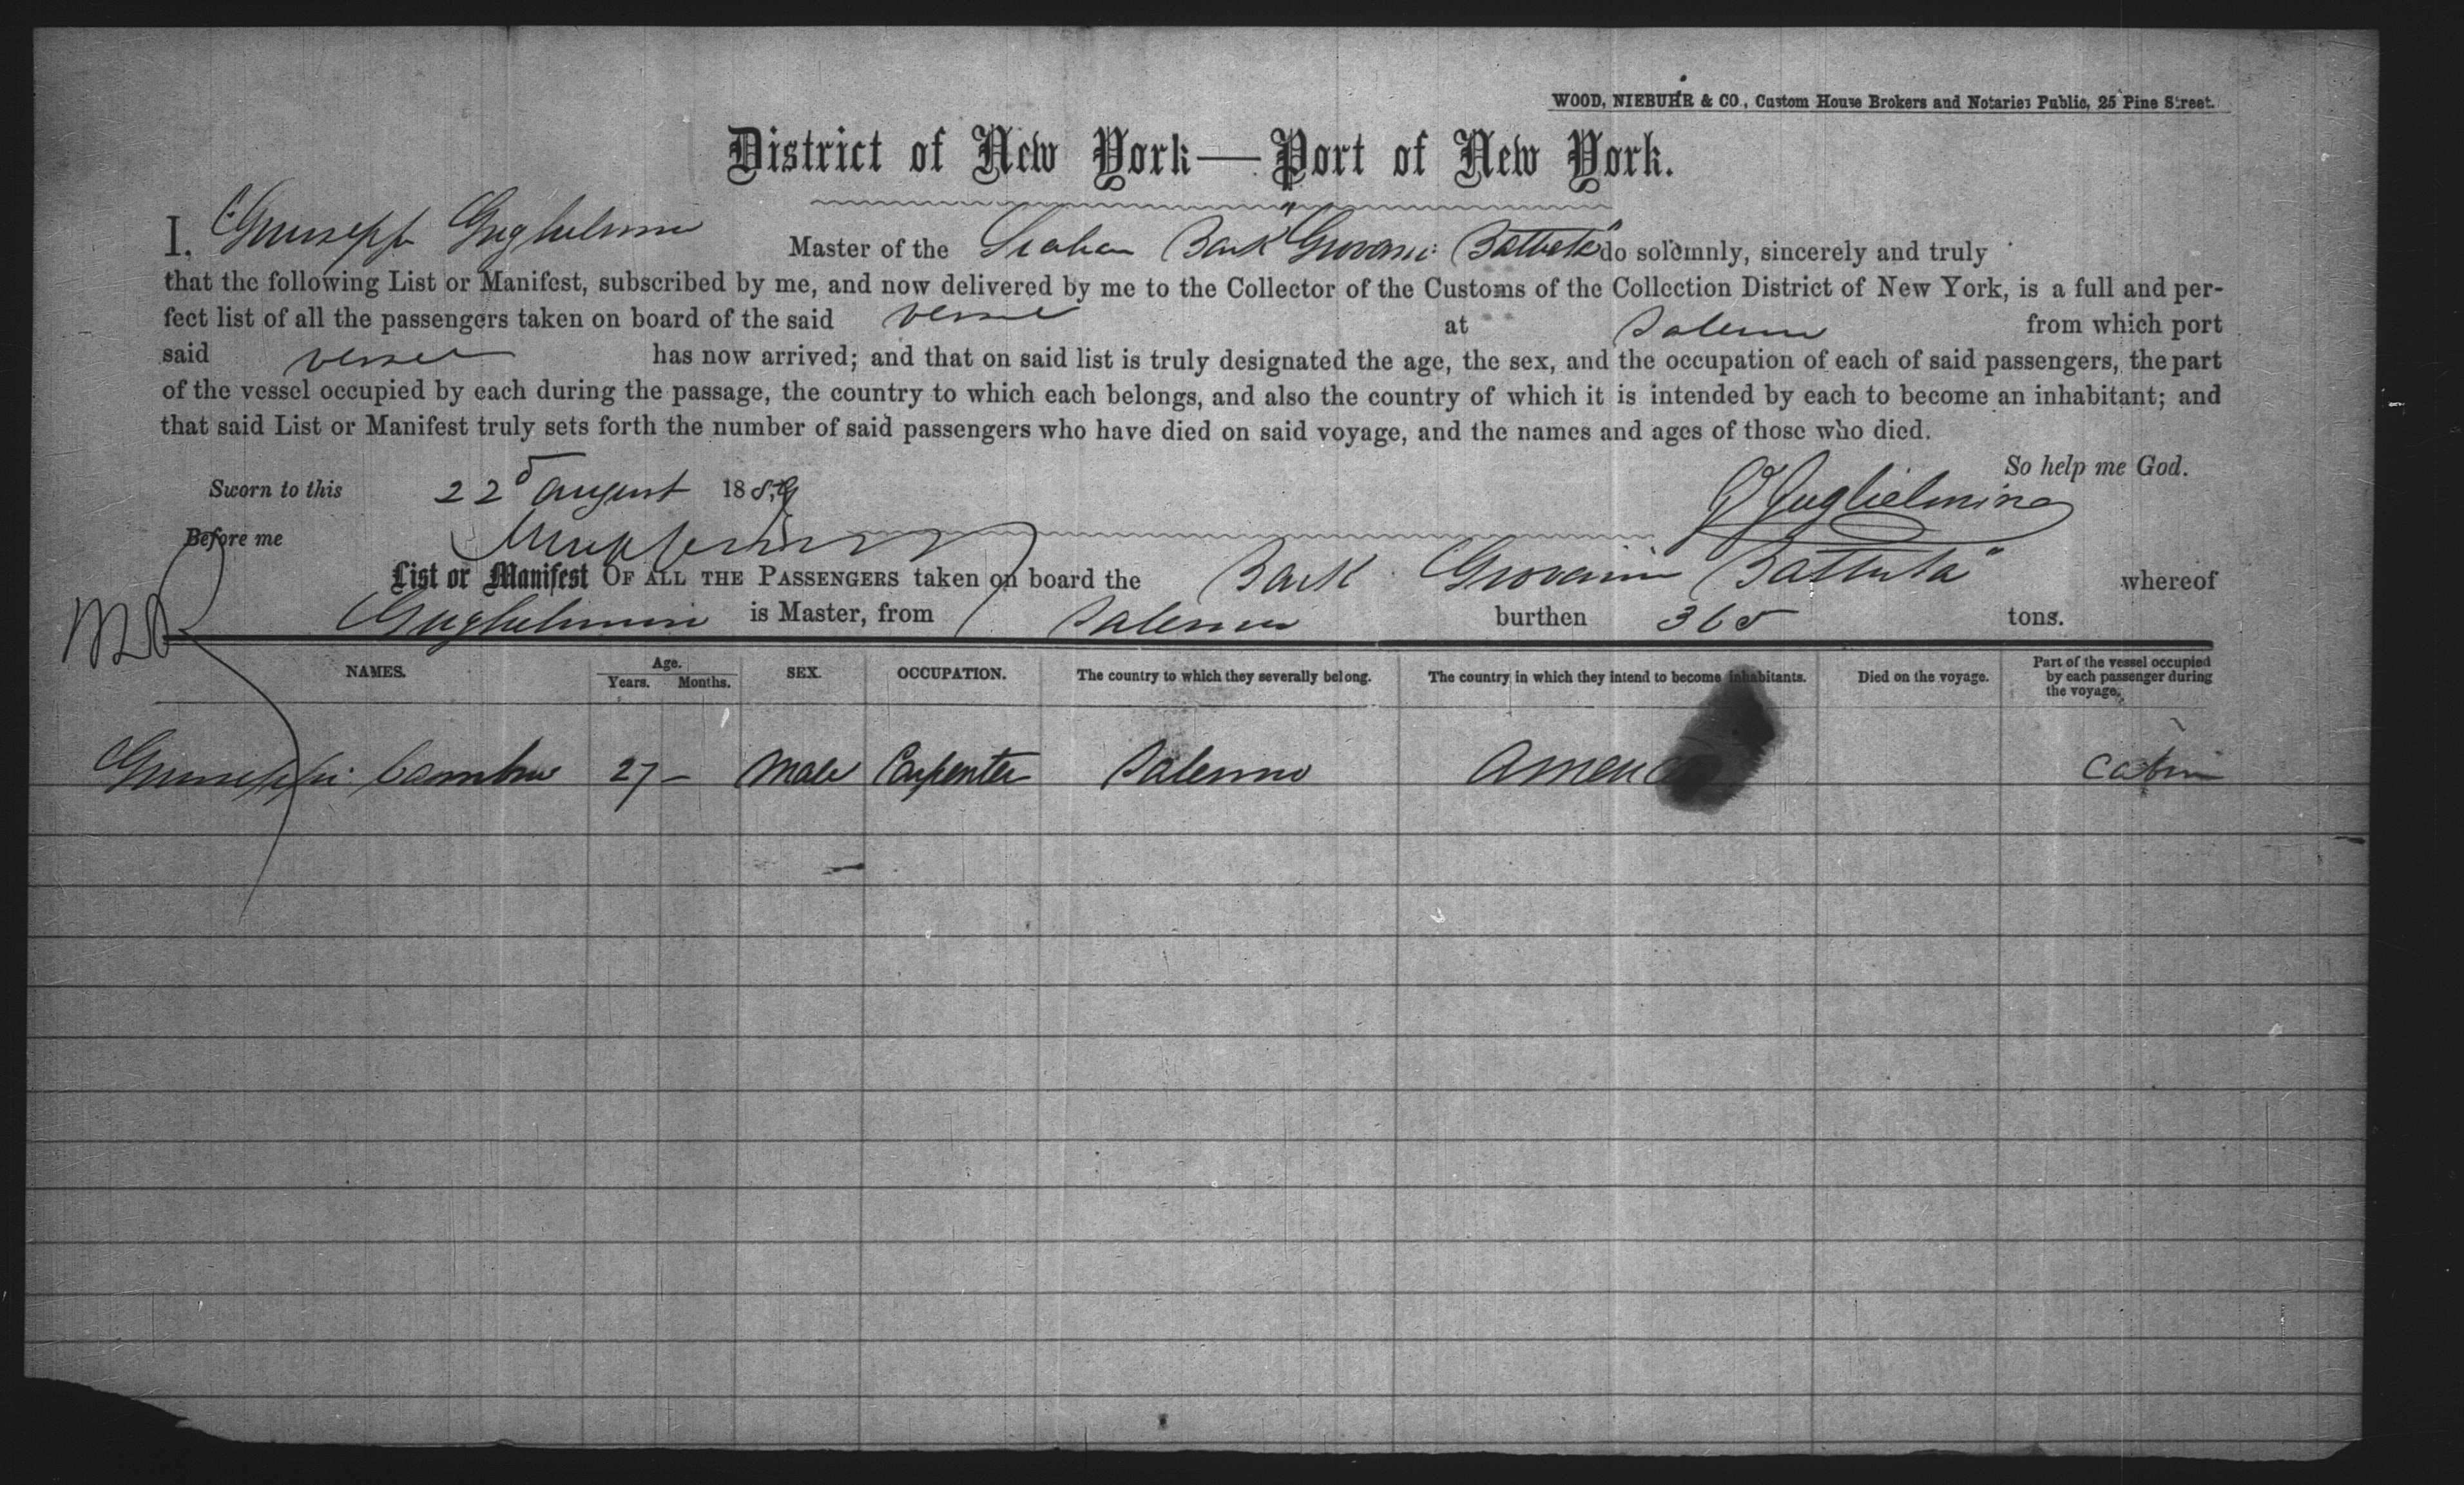 WOOD, NIEBUHR & CO., Custom House Brokers and Notaries Public, 25 Pine Street.
District of New York—Port of New York.
I, Giuseppe Guglielmini Master of the Italian Bark "Giovanni Battista" do solemnly, sincerely and truly
that the following List or Manifest, subscribed by me, and now delivered by me to the Collector of the Customs of the Collection District of New York, is a full and per-
fect list of all the passengers taken on board of the said vessel at Salerno from which port
said vessel has now arrived; and that on said list is truly designated the age, the sex, and the occupation of each of said passengers, the part
of the vessel occupied by each during the passage, the country to which each belongs, and also the country of which it is intended by each to become an inhabitant; and
that said List or Manifest truly sets forth the number of said passengers who have died on said voyage, and the names and ages of those who died.
So help me God.
Sworn to this 22d August 1889 G Guglielmino
Before me
List or Manifest OF ALL THE PASSENGERS taken on board the Bark Giovanni Battista" whereof
Guglielmini is Master, from Salerno burthen 365 tons.
NAMES. Age. Years. Months. SEX. OCCUPATION. The country to which they severally belong. The country in which they intend to become inhabitants. Died on the voyage. Part of the vessel occupied by each passenger during the voyage.
Giuseppi 27 – Male Carpenter Salerno America Cabin